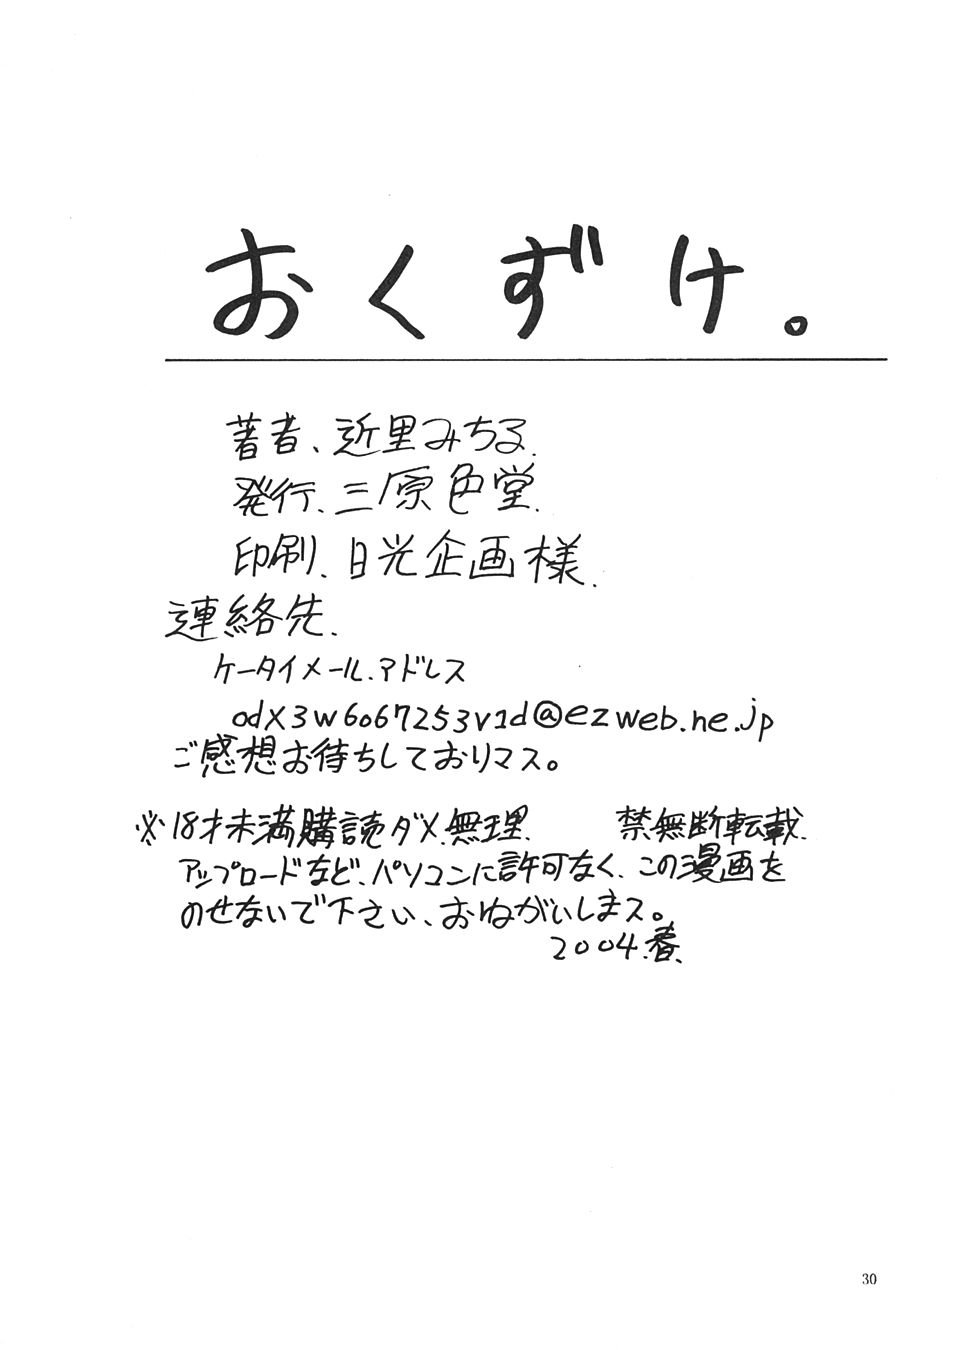 おくずけ。
著者、近里みちる.
発行、三原色堂.
印刷、日光企画様.
連絡先.
ケータイメール.アドレス
odx3w6o67253v1d@ezweb.ne.jp
ご感想お待ちしておりマス。
※18才未満購読ダメ.無理. 禁無断転載.
アップロードなど、パソコンに許可なく、この漫画を
のせないで下さい、おねがいしまス。
2004.春.
30